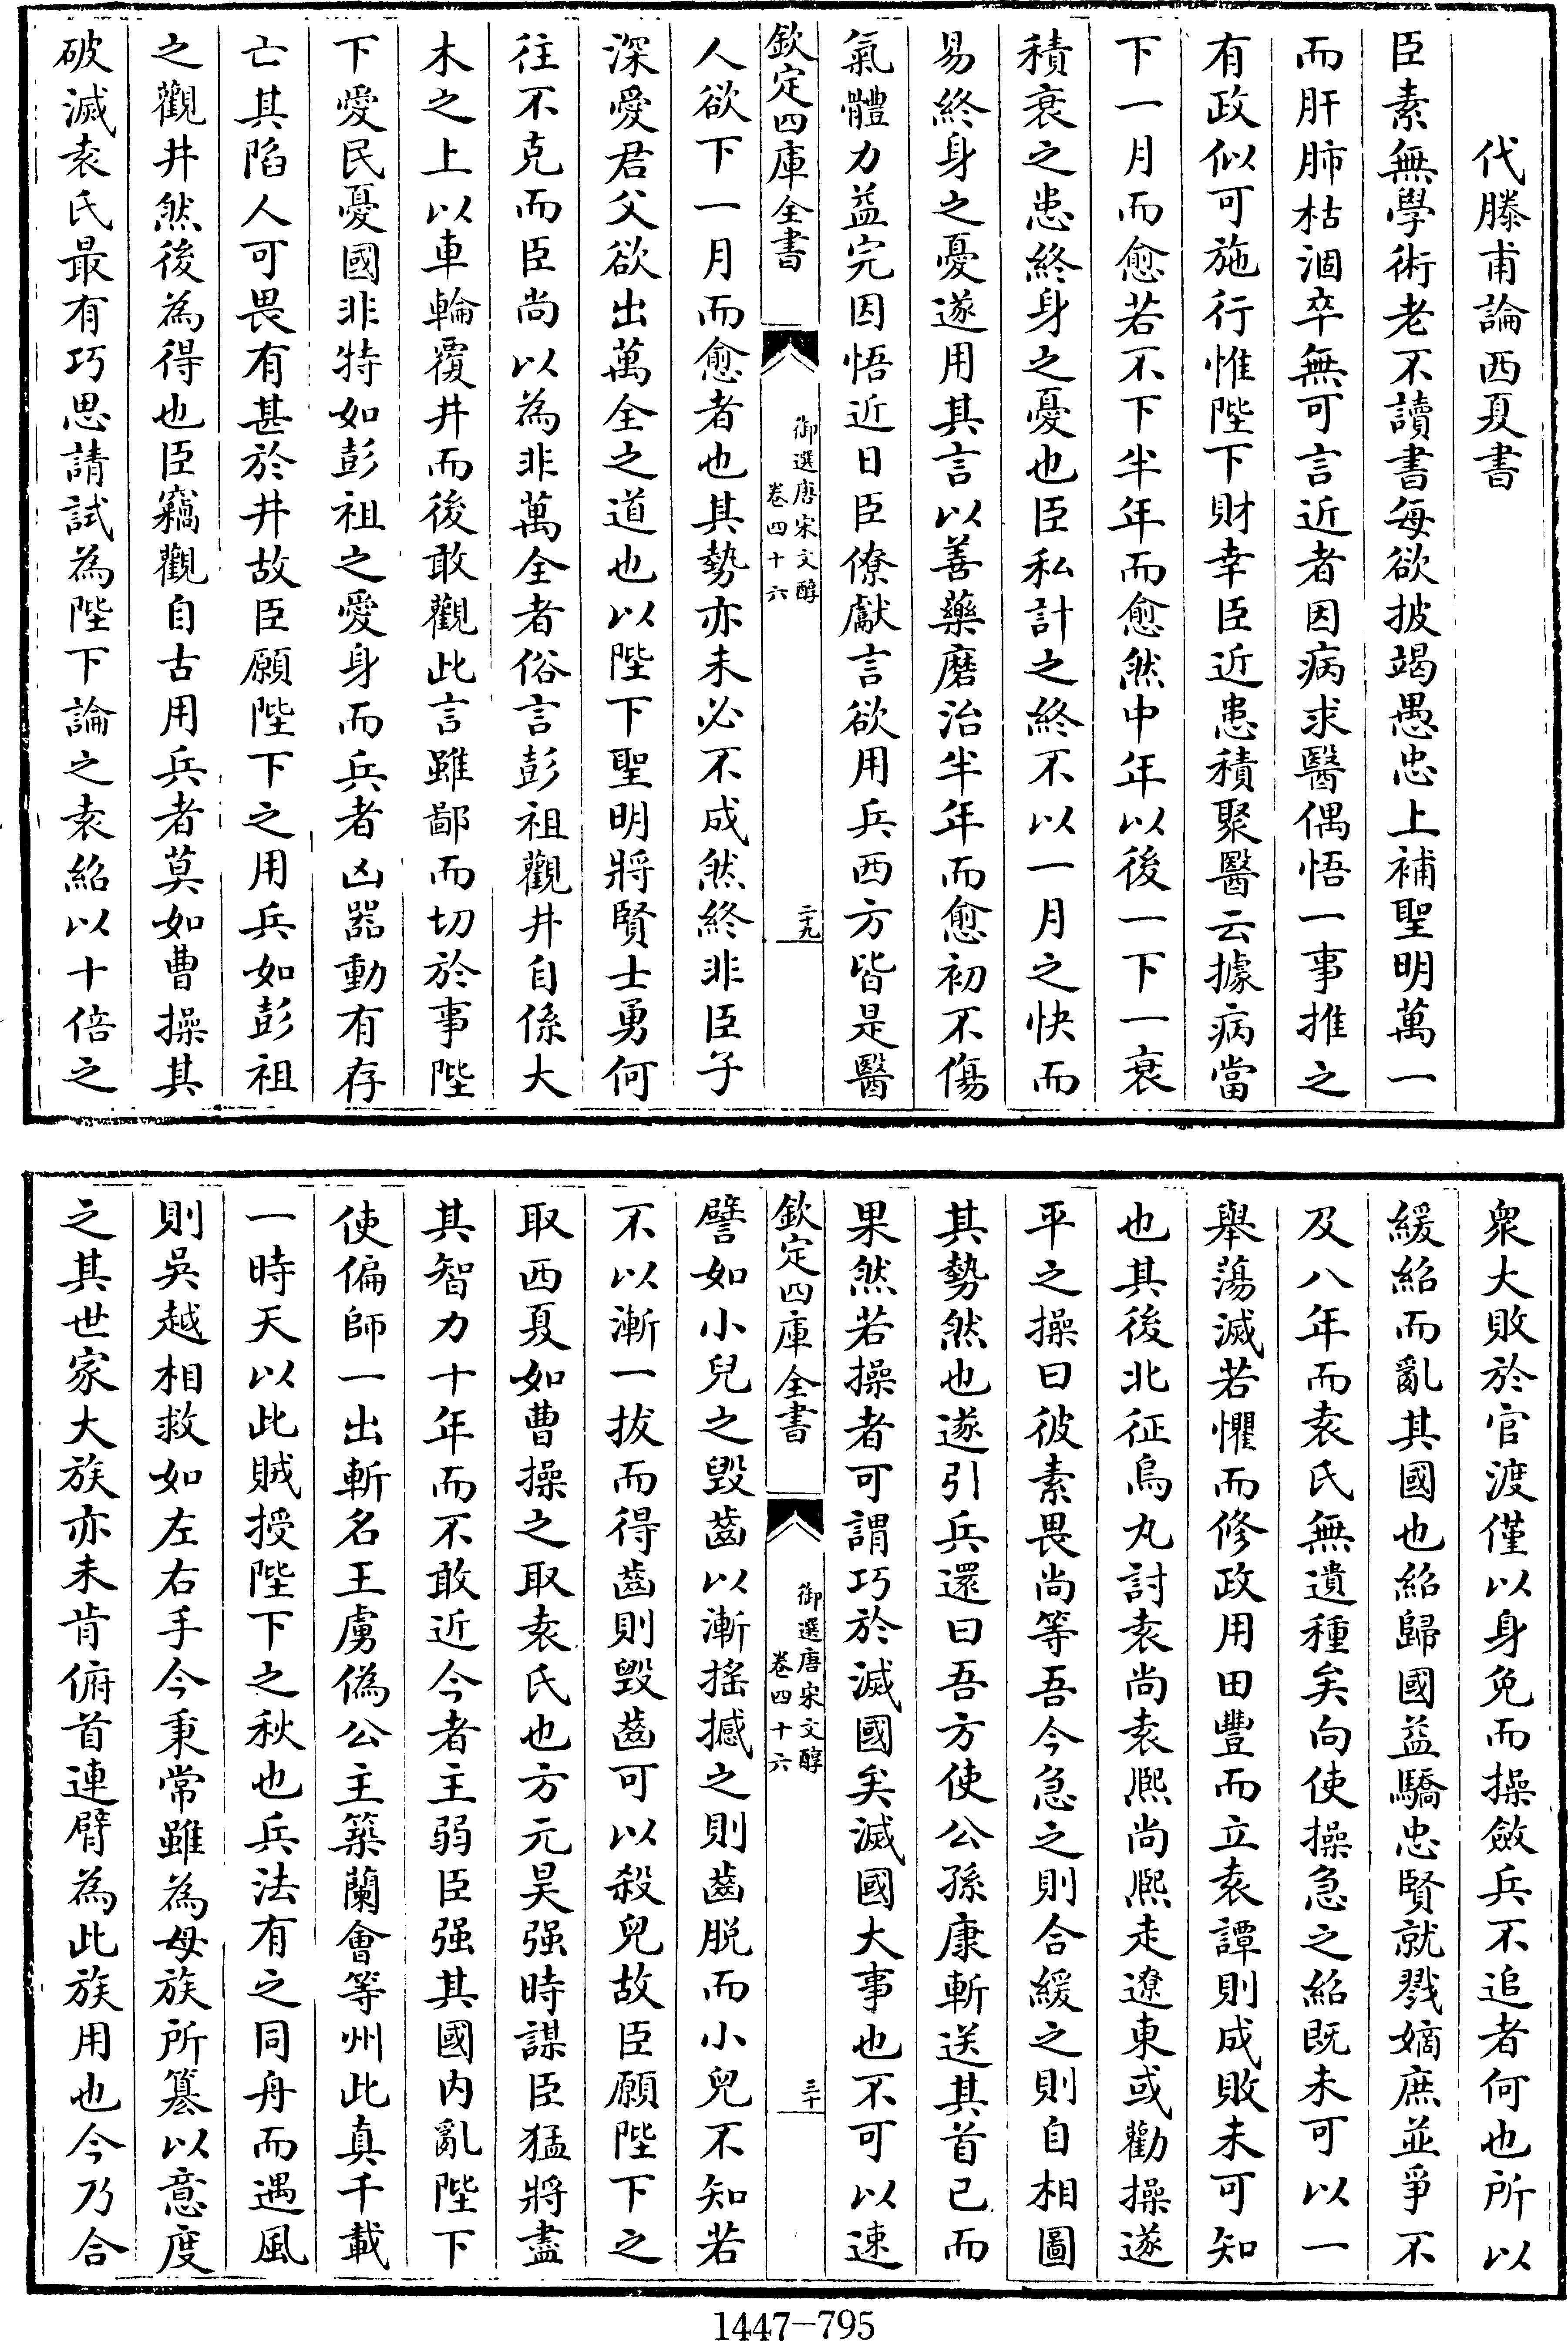 代滕甫論西夏書
臣素無學術老不讀書每欲披竭愚忠上補聖明萬一
而肝肺枯涸卒無可言近者因病求醫偶悟一事推之
有政似可施行惟陛下財幸臣近患積聚醫云據病當
下一月而愈若不下半年而愈然中年以後一下一衰
積衰之患終身之憂也臣私計之終不以一月之快而
易終身之憂遂用其言以善藥磨治半年而愈初不傷
氣體力益完因悟近日臣僚獻言欲用兵西方皆是醫
欽定四庫全書
御選唐宋文醇
卷四十六
二十九
人欲下一月而愈者也其勢亦未必不成然終非臣子
深愛君父欲出萬全之道也以陛下聖明將賢士勇何
往不克而臣尚以為非萬全者俗言彭祖觀井自係大
木之上以車輪覆井而後敢觀此言雖鄙而切於事陛
下愛民憂國非特如彭祖之愛身而兵者凶器動有存
亡其陷人可畏有甚於井故臣願陛下之用兵如彭祖
之觀井然後為得也臣竊觀自古用兵者莫如曹操其
破滅袁氏最有巧思請試為陛下論之袁紹以十倍之
衆大敗於官渡僅以身免而操斂兵不追者何也所以
緩紹而亂其國也紹歸國益驕忠賢就戮嫡庶並爭不
及八年而袁氏無遺種矣向使操急之紹既未可以一
舉蕩滅若懼而修政用田豐而立袁譚則成敗未可知
也其後北征烏丸討袁尚袁熈尚熈走遼東或勸操遂
平之操曰彼素畏尚等吾今急之則合緩之則自相圖
其勢然也遂引兵還曰吾方使公孫康斬送其首已而
果然若操者可謂巧於滅國矣滅國大事也不可以速
欽定四庫全書
御選唐宋文醇
卷四十六
三十
譬如小兒之毀齒以漸搖撼之則齒脱而小兒不知若
不以漸一拔而得齒則毀齒可以殺兒故臣願陛下之
取西夏如曹操之取袁氏也方元昊强時謀臣猛將盡
其智力十年而不敢近今者主弱臣强其國内亂陛下
使偏師一出斬名王虜偽公主築蘭會等州此真千載
一時天以此賊授陛下之秋也兵法有之同舟而遇風
則吳越相救如左右手今秉常雖為母族所簒以意度
之其世家大族亦未肯俯首連臂為此族用也今乃合
1447—795